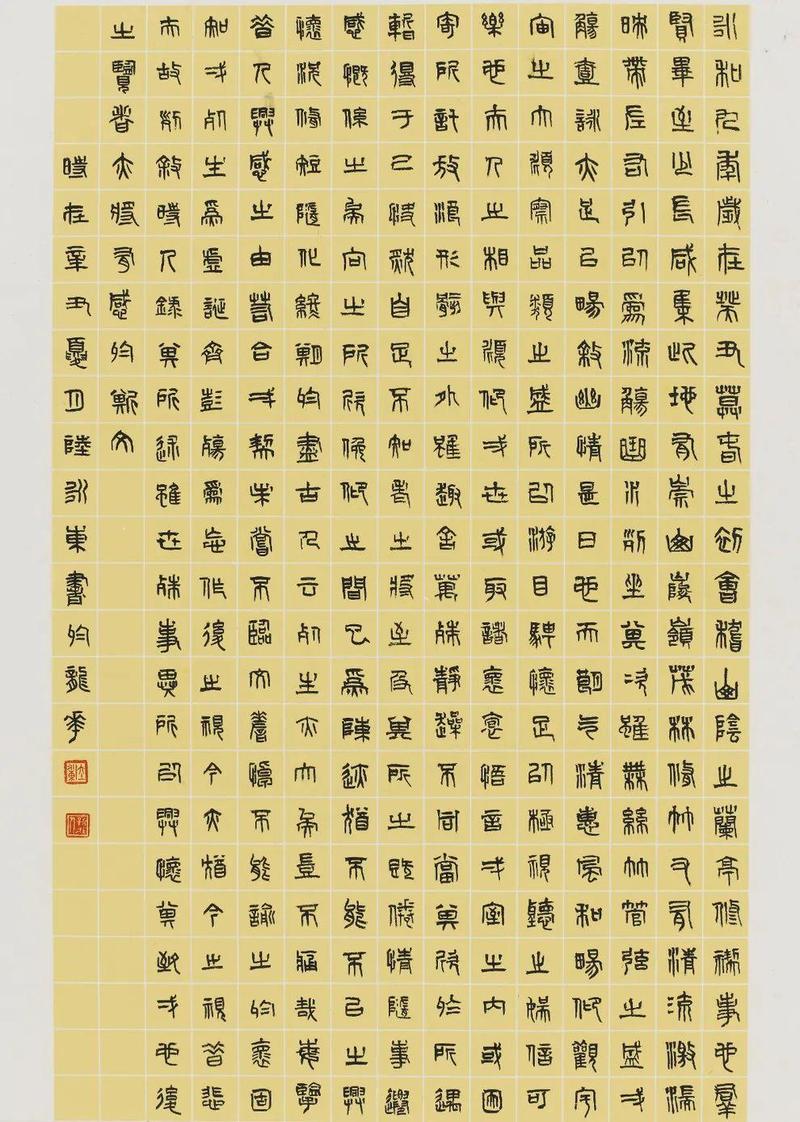 永和九年歲在癸丑暮春之初會稽山陰之蘭亭修禊事也羣
賢畢至少長咸集此地有崇山峻嶺茂林修竹又有清流激湍
映帶左右引以為流觴曲水列坐其次雖無絲竹管弦之盛弌
觴壹詠亦足以暢敘幽情是日也天朗氣清惠風和暢仰觀宇
宙之大俯察品類之盛所以游目騁懷足以極視聽之娛信可
樂也夫人之相與俯仰弌世或取諸懷抱悟言弌室之內或因
寄所託放浪形骸之外雖趣舍萬殊靜躁不同當其欣於所遇
暫得于己快然自足不知老之將至及其所之既倦情隨事遷
感慨係之矣向之所欣俛仰之間已為陳迹猶不能不以之興
懷況修短隨化終期於盡古人云死生亦大矣豈不痛哉每覽
昔人興感之由若合弌契未嘗不臨文嗟悼不能喻之於懷固
知弌死生為虛誕齊彭殤為妄作後之視今亦猶今之視昔悲
夫故列敘時人錄其所述雖世殊事異所以興懷其致弌也後
之覽者亦將有感於斯文
時在辛丑夏月陸永東書於龍華